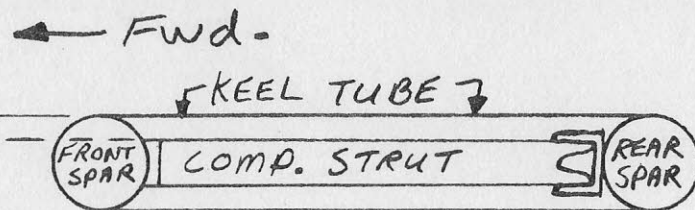 Fwd.
KEEL TUBE
FRONT SPAR
COMP. STRUT
REAR SPAR